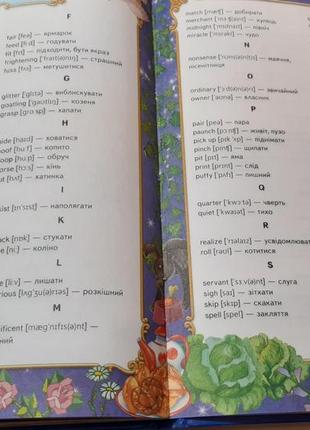 F
fair [feə] — ярмарок
feed [fi:d] — годувати
fit [fɪt] — підходити, бути якраз
frightening ['fraɪt(ə)nɪŋ] — страшний
fuss [fʌs] — метушитися
G
glitter ['glɪtə] — виблискувати
goatling ['gəʊtlɪŋ] — козеня
grasp [grɑ:sp] — хапати
H
hide [haɪd] — ховатися
hoof [hu:f] — копито
hoop [hu:p] — обруч
horse [hɔ:s] —
hut [hʌt] — хатинка
I
insist [ɪn'sɪst] — наполягати
K
knock [nɒk] — стукати
knee [ni:] — коліно
L
leave [li:v] — лишати
luxurious [lʌg'ʒʊ(ə)rɪəs] — розкішний
M
magnificent [mæg'nɪfɪs(ə)nt] —
match [mætʃ] — добирати
merchant ['mɜ:tʃ(ə)nt] — купець
midnight ['mɪdnaɪt] — північ
miracle ['mɪrək(ə)l] — чудо
N
nonsense ['nɒns(ə)ns] — маячня,
нісенітниця
O
ordinary ['ɔ:d(ə)n(ə)rɪ] — звичайний
owner ['əʊnə] — власник
P
pair [peə] — пара
paunch [pɔ:ntʃ] — живіт, пузо
pick up [pɪk 'ʌp] — піднімати
pinch [pɪntʃ] — щипати
pit [pɪt] — яма
print [prɪnt] — слід
puffy ['pʌfɪ] — пишний
Q
quarter ['kwɔ:tə] — чверть
quiet ['kwaɪət] — тихо
R
realize ['rɪəlaɪz] — усвідомлювати
roll [rəʊl] — котитися
S
servant ['sɜ:v(ə)nt] — слуга
sigh [saɪ] — зітхати
skip [skɪp] — скакати
spell [spel] — закляття